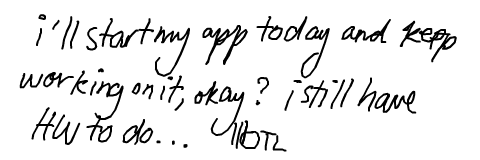 i'll start my app today and keep
working on it, okay? i still have
HW to do... |||OTL